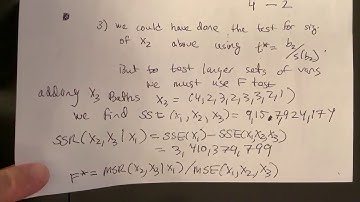 4 - 2
3) we could have done the test for sig.
of X2 above using t* = b2 / s(b2).
But to test larger sets of vars
we must use F test
adding X3 Baths X3 = (4,2,3,2,3,3,2,1)
we find SSE (X1, X2, X3) = 9,15,7924,174
SSR(X2, X3 | X1) = SSE(X1) - SSE(X1,X2,X3)
= 3,410,379,799
F* = MSR(X2, X3|X1) / MSE(X1, X2, X3)